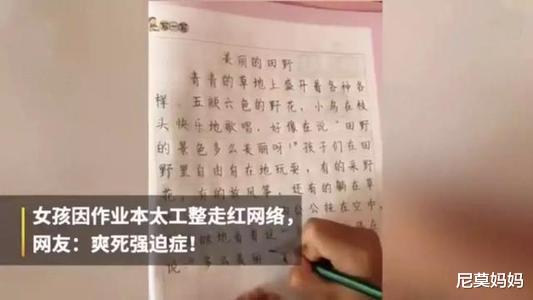 写一写
美丽的田野
青青的草地上盛开着各种各
样、五颜六色的野花,小鸟在枝
头快乐地歌唱,好像在说“田野
的景色多么美丽呀!”孩子们在田
野里自由自在地玩耍,有的采野
花,有的放风筝,还有的躺在草
公公挂在空中,
眯地看着这
说“多么美丽
女孩因作业本太工整走红网络,
网友:爽死强迫症!
尼莫妈妈